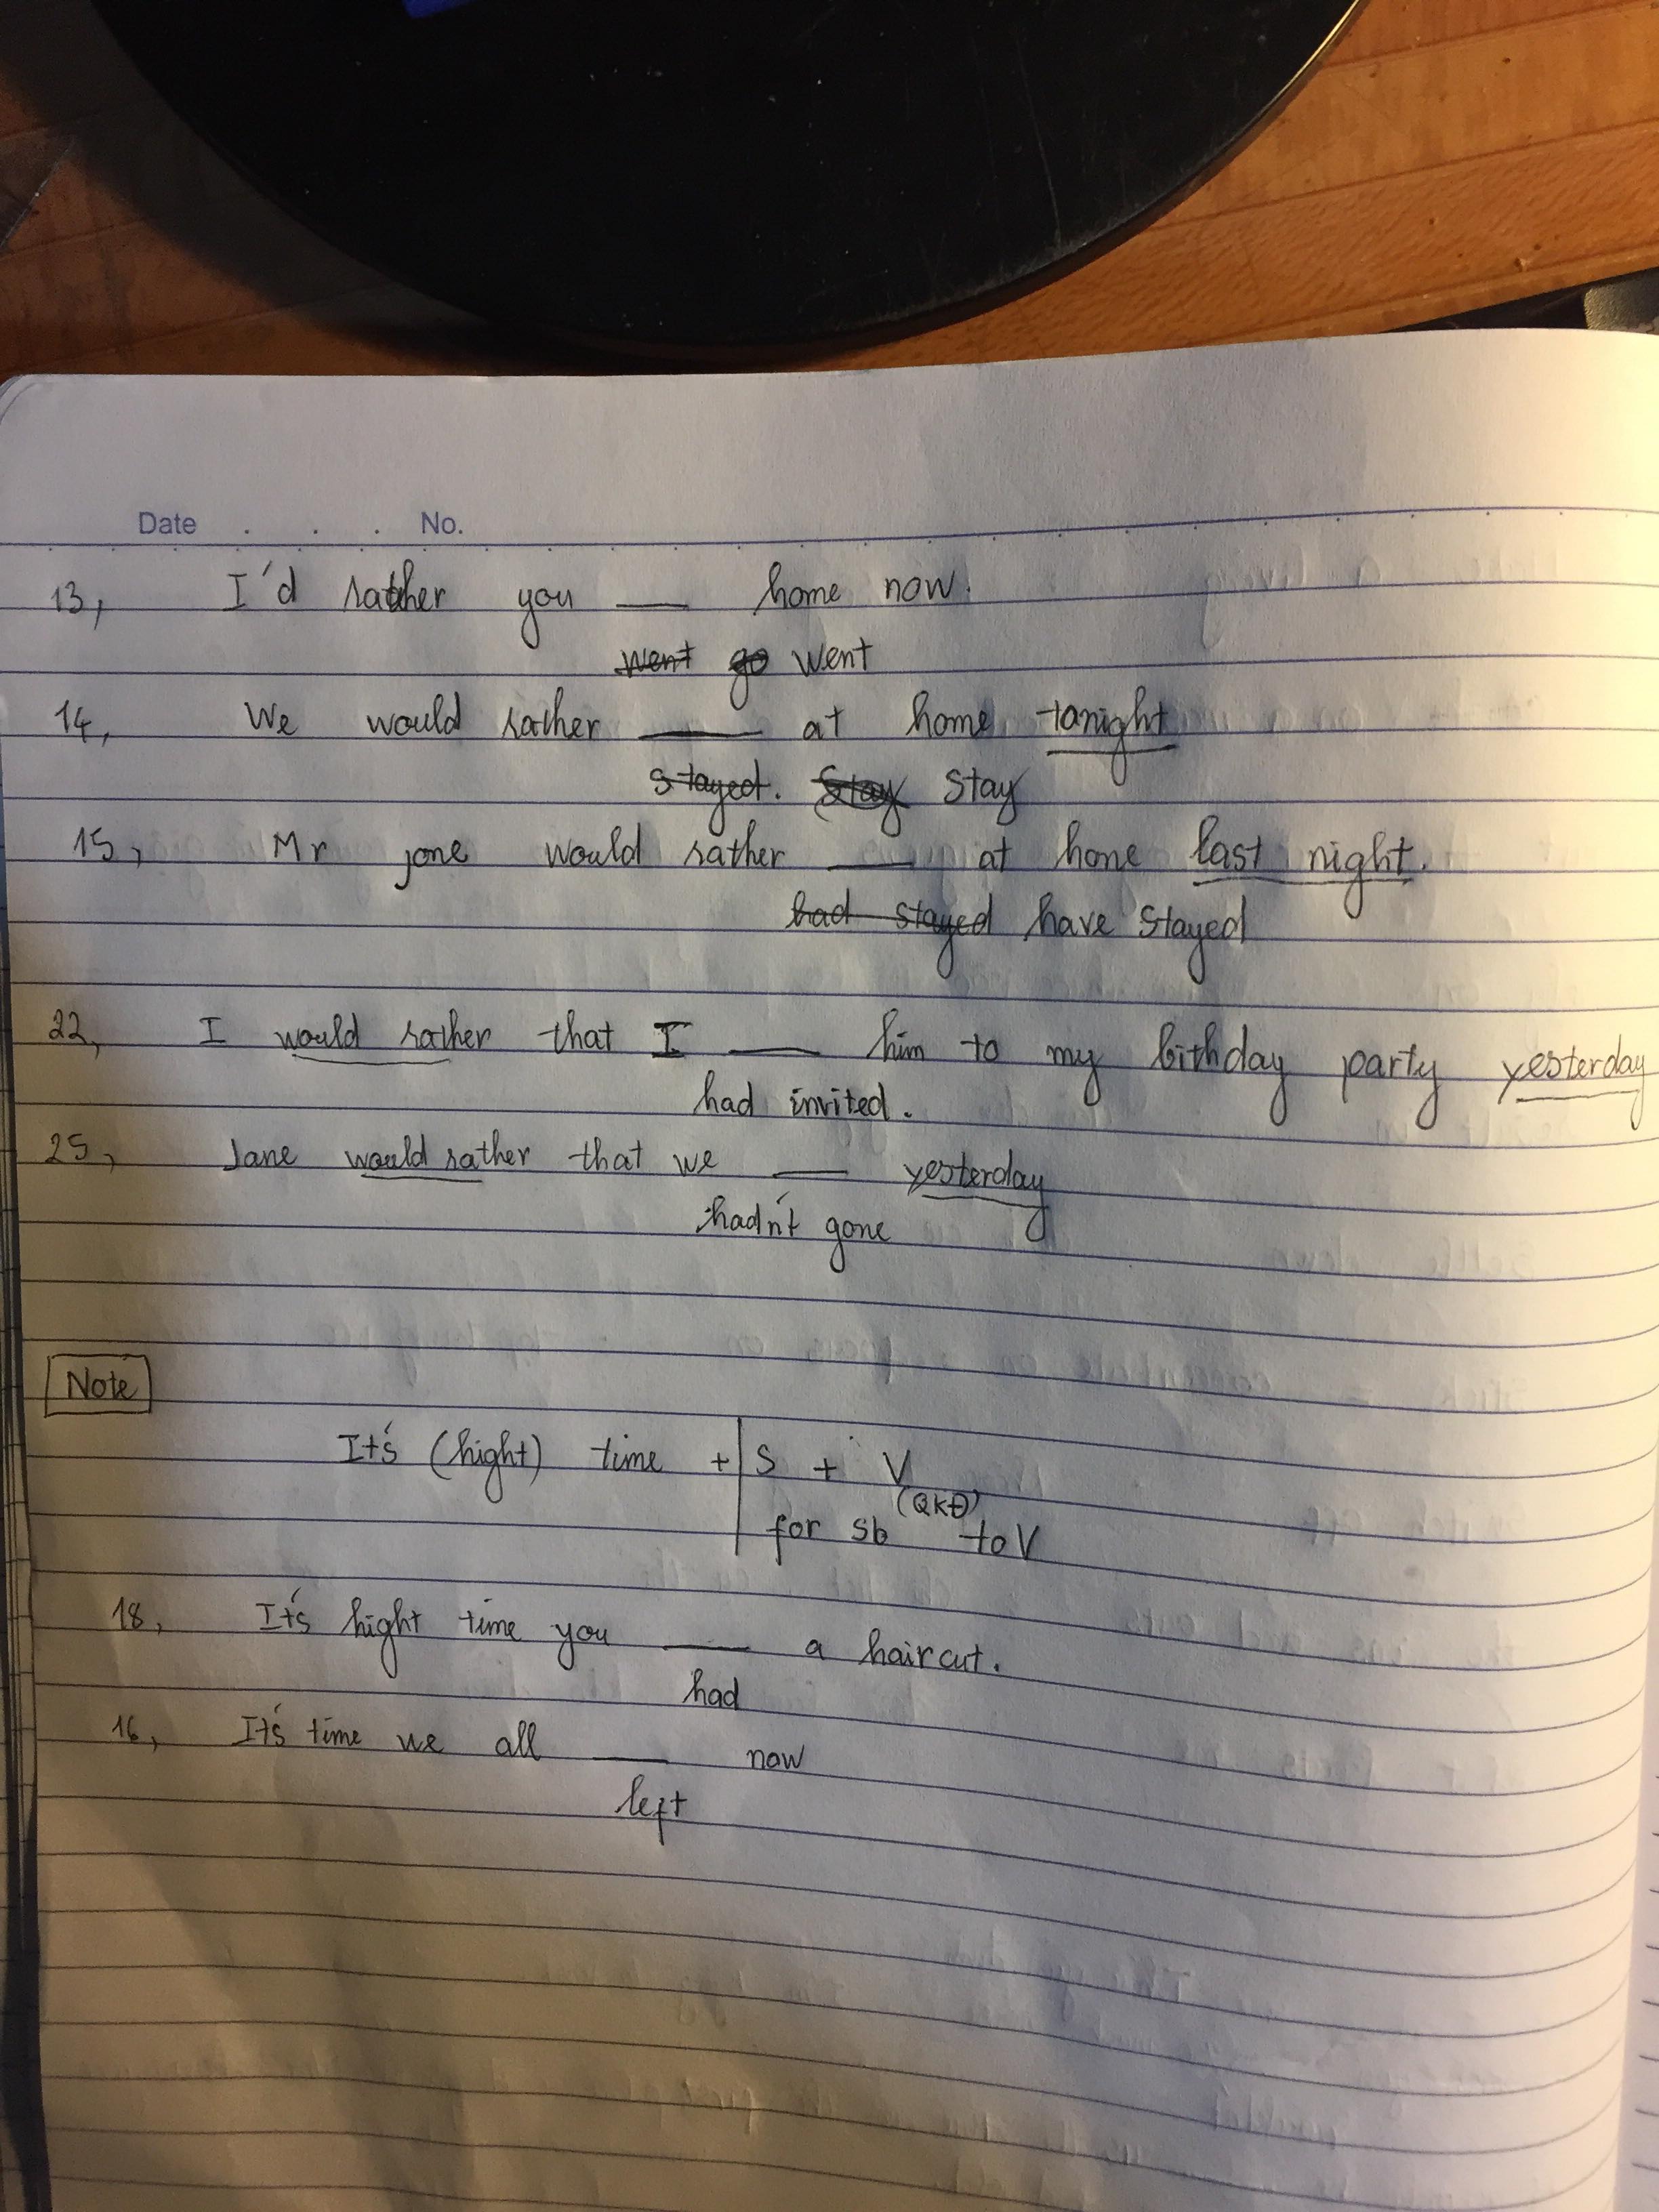 Date . . . No.
13, I'd rather you ___ home now.
went go went
14, We would rather ___ at home tonight
stayed. stay stay
15, Mr jone would rather ___ at home last night.
had stayed have stayed
22, I would rather that I ___ him to my bithday party yesterday
had invited.
25, Jane would rather that we ___ yesterday
hadn't gone
Note
It's (hight) time + S + V
(QKĐ)
for sb to V
18, It's hight time you ___ a haircut.
had
16, It's time we all ___ now
left